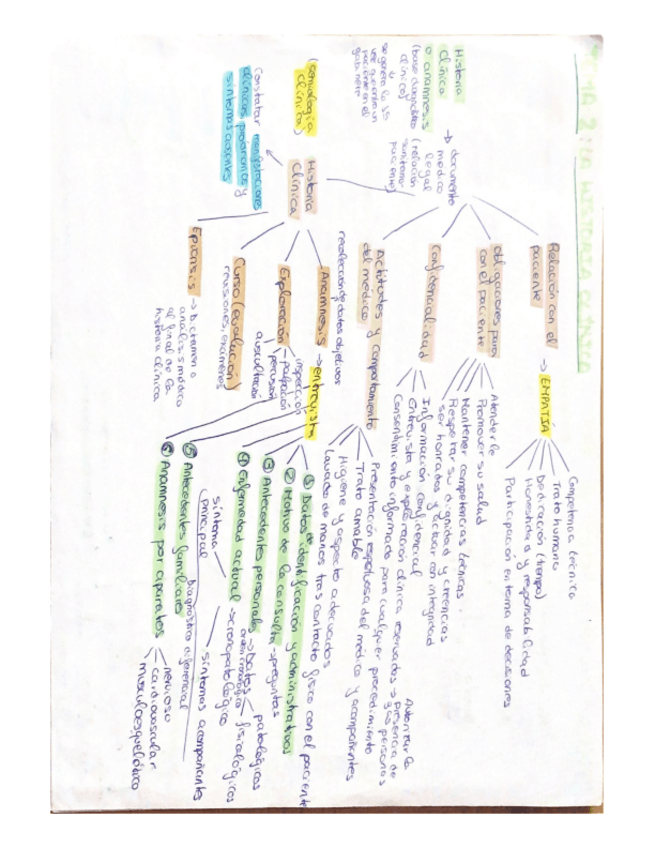 TEMA 2: LA HISTORIA CLÍNICA
Historia
Clínica
o anamnesis
(base diagnóstico
clínico)
↓
se genera la 1ª
vez que entra un
paciente en el
gabinete
→ documento
médico
legal
(relación
sanitario-
paciente)
Relación con el
paciente
→ EMPATÍA
Competencia técnica
Trato humano
Dedicación (tiempo)
Honestidad y responsabilidad
Participación en toma de decisiones
Obligaciones para
con el paciente
Atenderle
Promover su salud
Mantener competencias técnicas.
Respetar su dignidad y creencias
ser honrados y actuar con integridad
Confidencialidad
Información confidencial
Entrevista y exploración clínica reservados → presencia de
3as personas
Autorizarla
Consentimiento informado para cualquier procedimiento
Actitudes y comportamiento
del médico
Presentación respetuosa del médico y acompañantes
Trato amable
Higiene y aspecto adecuados
Lavado de manos tras contacto físico con el paciente
(semiología
clínica)
Historia
Clínica
Constatar manifestaciones
clínicas prodrómicas y
síntomas ausentes
recolección de datos objetivos
Anamnesis → entrevista
① Datos de identificación y administrativos
② Motivo de la consulta → preguntas
③ Antecedentes personales → Datos
patológicos
fisiológicos
orden cronológico
④ Enfermedad actual → cronopatológico
síntoma
principal
síntomas acompañantes
Diagnóstico diferencial
⑤ Antecedentes familiares
⑥ Anamnesis por aparatos
nervioso
cardiovascular
musculoesquelético
Exploración
inspección
palpación
percusión
auscultación
Curso (evolución)
revisiones, exámenes
Epicrisis → Dictamen o
análisis médico
al final de la
historia clínica